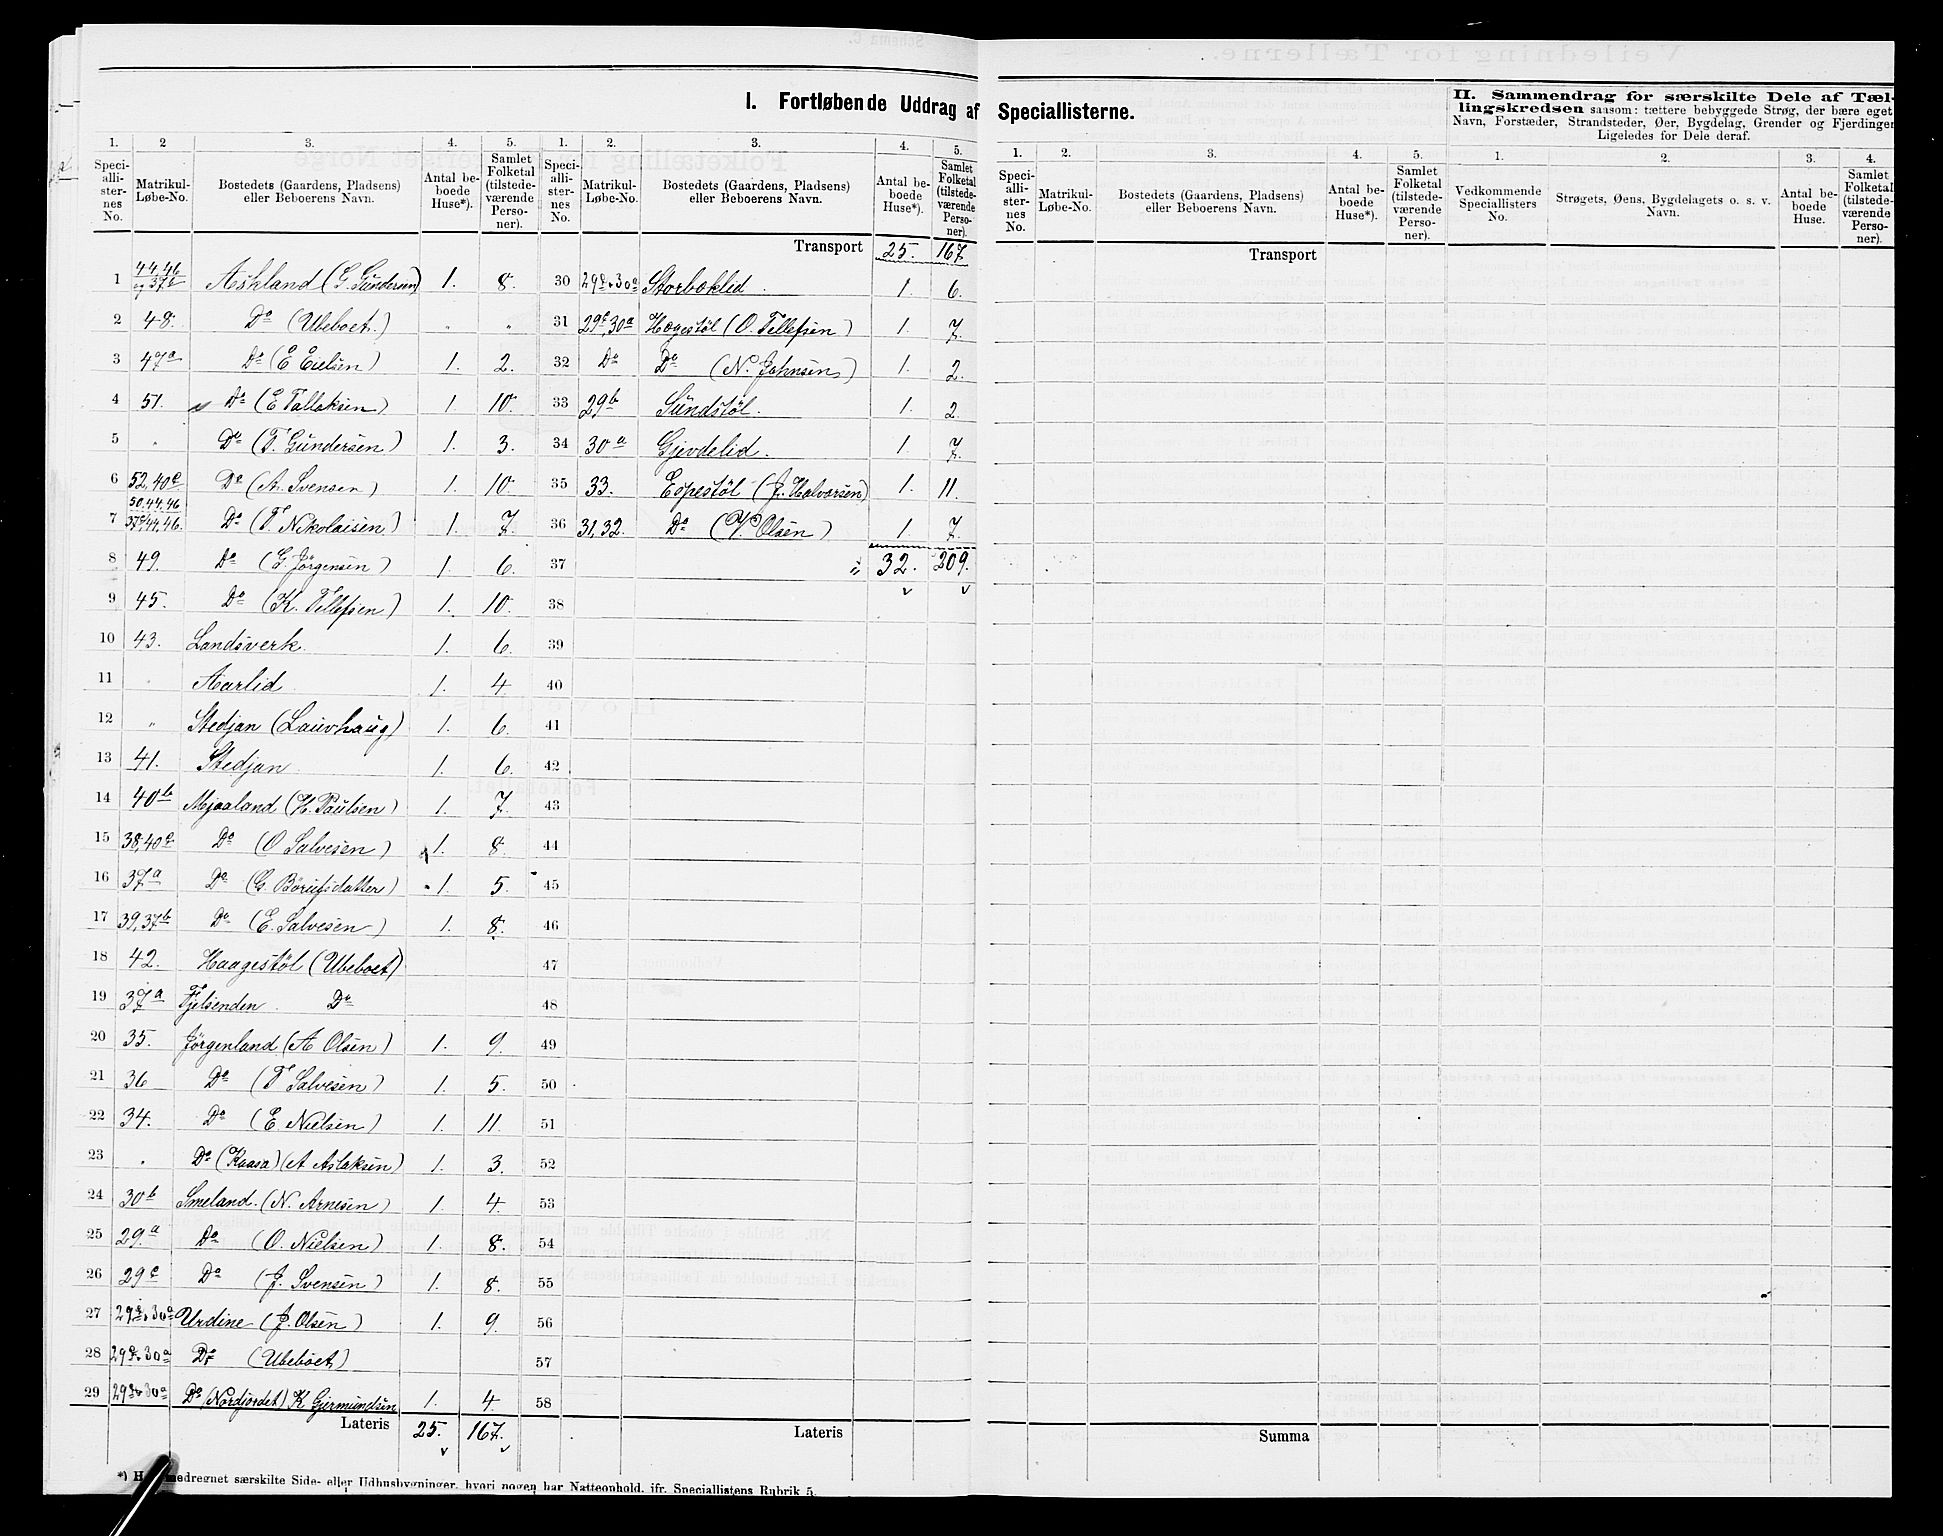 I. Fortløbende Uddrag af Speciallisterne.
II. Sammendrag for særskilte Dele af Tæl-
lingskredsen saasom: tættere bebyggede Strøg, der bære eget
Navn, Forstæder, Strandsteder, Øer, Bygdelag, Grender og Fjerdinger
Ligeledes for Dele deraf.
1. 2 3. 4. 5. 1. 2. 3. 4. 5. 1. 2. 3. 4. 5. 1. 2. 3. 4.
Speci-alli-ster-nes No. Matrikul-Løbe-No. Bostedets (Gaardens, Pladsens) eller Beboerens Navn. Antal be-boede Huse*). Samlet Folketal (tilstede-værende Perso-ner).
Speci-alli-ster-nes No. Matrikul-Løbe-No. Bostedets (Gaardens, Pladsens) eller Beboerens Navn. Antal be-boede Huse*). Samlet Folketal (tilstede-værende Perso-ner).
Speci-alli-ster-nes No. Matrikul-Løbe-No. Bostedets (Gaardens, Pladsens) eller Beboerens Navn. Antal be-boede Huse*). Samlet Folketal (tilstede-værende Perso-ner).
Vedkommende Speciallisters No. Strøgets, Øens, Bygdelagets o. s. v. Navn. Antal be-boede Huse. Samlet Folketal (tilstede-værende Perso-ner).
1 44,46 og 37b Askland (G. Gundersen) 1. 8.
2 48. Do (Ubeboet.) " "
3 47a Do (E Eielsen) 1. 2.
4 51. Do (E Tallaksen) 1 10.
5 " Do (T. Gundersen) 1. 3.
6 52,40c Do (A. Svensen) 1. 10.
7 50,44,46 37c,44,46. Do (T. Nikolaisen) 1. 7.
8 49. Do (G. Jörgensen) 1. 6.
9 45. Do (K. Tellefsen) 1. 10.
10 43. Landsverk 1. 6.
11 " Aarlid 1. 4
12 " Stedjan (Lauvhaug) 1. 6.
13 41. Stedjan 1. 6.
14 40b Mjaaland (H. Paulsen) 1. 7.
15 38,40c Do (O Salvesen) 1. 8.
16 37a Do (G. Börufsdatter) 1. 5.
17 39,37b Do (E. Salvesen) 1. 8.
18 42. Haagestöl (Ubeboet)
19 37a Fjelsenden Do
20 35. Jörgenland (A Olsen) 1. 9.
21 36 Do (T Salvesen) 1. 5.
22 34. Do (E. Nielsen) 1. 11.
23 " Do (Kaasa) (A Aslaksen) 1. 3.
24 30b Smeland. (N. Arnesen) 1. 4.
25 29.a Do (O. Nielsen) 1. 8.
26 29c Do (J. Svensen) 1. 8.
27 Urdine (J. Olsen) 1. 9.
28 Do (Ubeboet)
29 Do (Nordjordet) K Gjermundsen 1. 4.
Lateris 25. 167.
Transport 25. 167
30 Storbæklid. 1. 6.
31 29c,30a Hægestöl (O. Tellefsen) 1. 7.
32 Do Do (N. Johnsen) 1. 2.
33 29b Sundstöl. 1. 2.
34 30a Gjevdelid. 1. 7.
35 33. Espestöl (J. Halvorsen) 1. 11.
36 31,32. Do (V. Olsen) 1 7.
37 32. 209.
38
39
40
41
42
43
44
45
46
47
48
49
50
51
52
53
54
55
56
57
58
Lateris
Transport
Summa
*) medregnet særskilte Side- eller Udhusbygninger, hvori nogen har Natteophold, jfr. Speciallistens Rubrik 5.